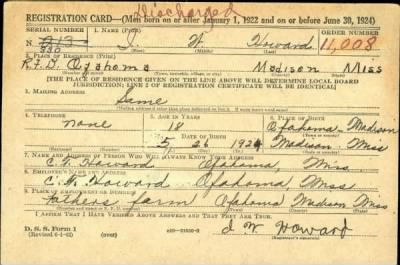 Discharged
REGISTRATION CARD—(Men born on or after January 1, 1922 and on or before June 30, 1924)
SERIAL NUMBER 1. NAME (Print) ORDER NUMBER
W. Howard 11,008
2. PLACE OF RESIDENCE (Print)
R.F.D. Ofahoma Madison Miss
(Town, township, village, or city) (County) (State)
[THE PLACE OF RESIDENCE GIVEN ON THE LINE ABOVE WILL DETERMINE LOCAL BOARD
JURISDICTION; LINE 2 OF REGISTRATION CERTIFICATE WILL BE IDENTICAL]
3. MAILING ADDRESS
Same
4. TELEPHONE 5. AGE IN YEARS 6. PLACE OF BIRTH
none 18 Ofahoma - Madison
DATE OF BIRTH
5 26 1924 Madison Miss
7. NAME AND ADDRESS OF PERSON WHO WILL ALWAYS KNOW YOUR ADDRESS
Howard Ofahoma, Miss
8. EMPLOYER'S NAME AND ADDRESS
Howard Ofahoma, Miss
9. PLACE OF EMPLOYMENT OR BUSINESS
Fathers farm Ofahoma Madison Miss
I AFFIRM THAT I HAVE VERIFIED ABOVE ANSWERS AND THAT THEY ARE TRUE.
D. S. S. Form 1
W. Howard
(Registrant's signature)